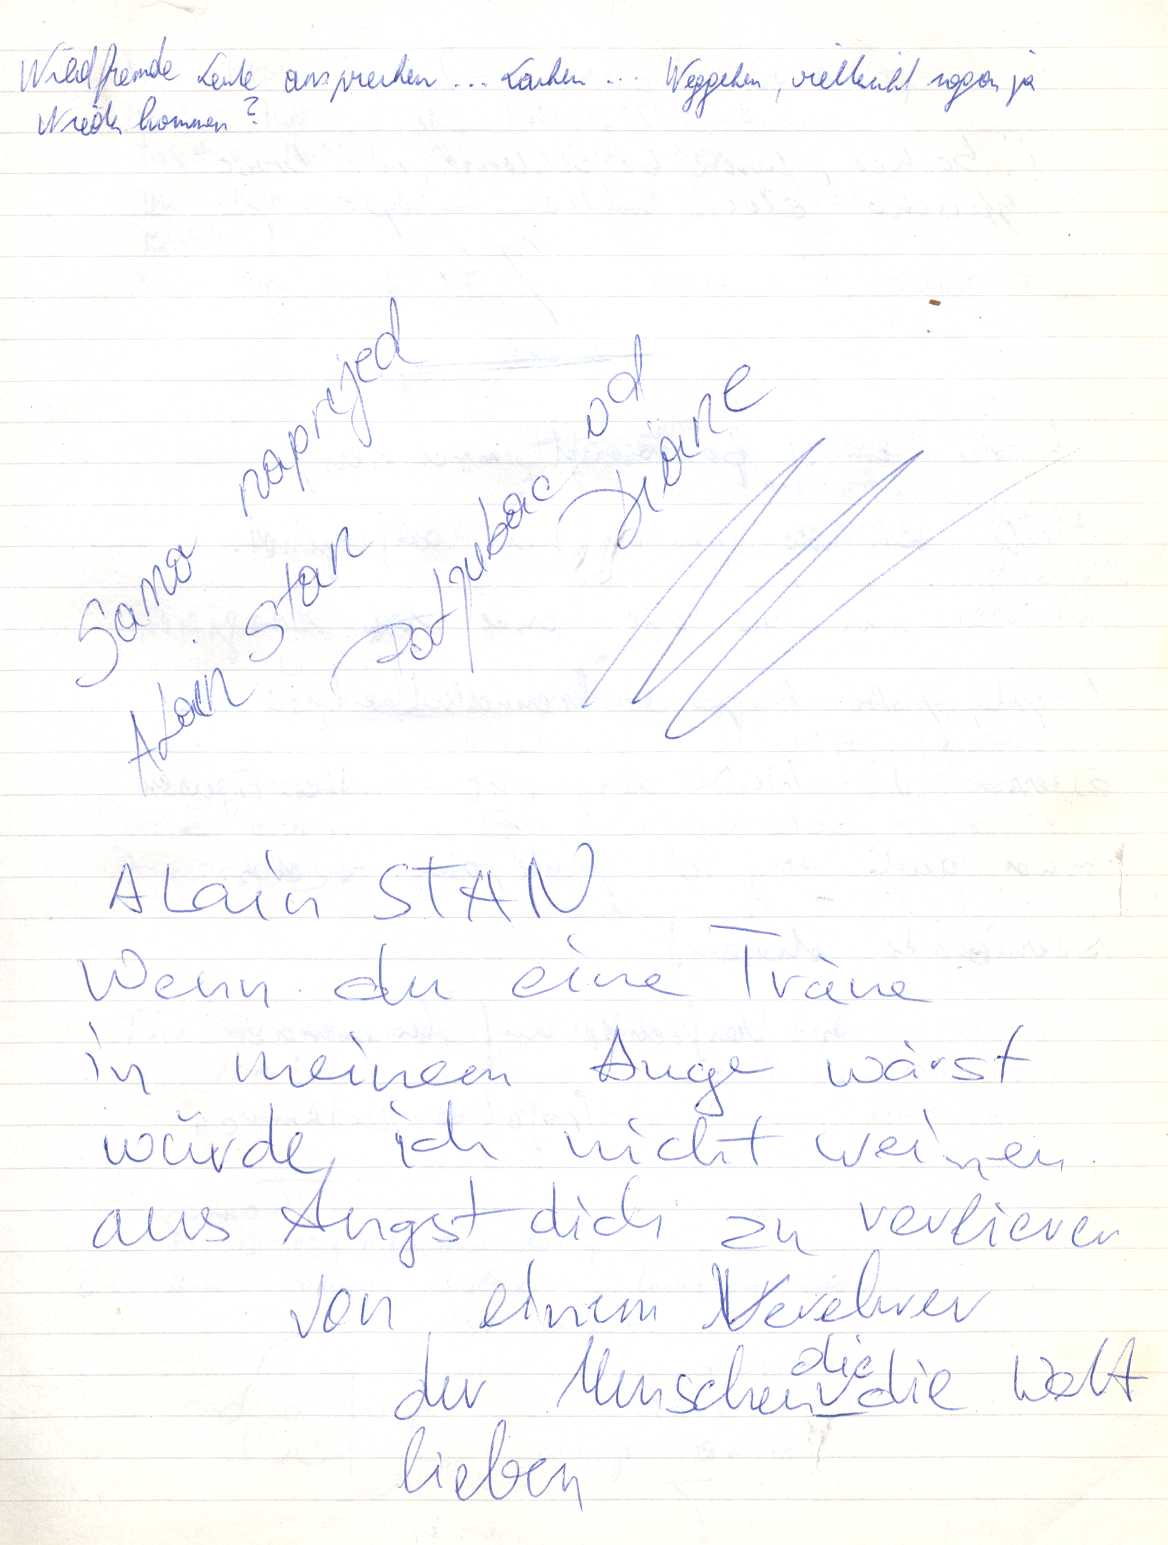 Wildfremde Leute ansprechen ... Lachen ... Weggehen, vielleicht sogar ja
Wiederkommen?
Samo naprijed
Alain Stan
Potpubac od
Diane
ALain STAN
Wenn du eine Träne
in meinem Auge wärst
würde ich nicht weinen
aus Angst dich zu verlieren
von einem Verehrer
der Menschen die die Welt
lieben